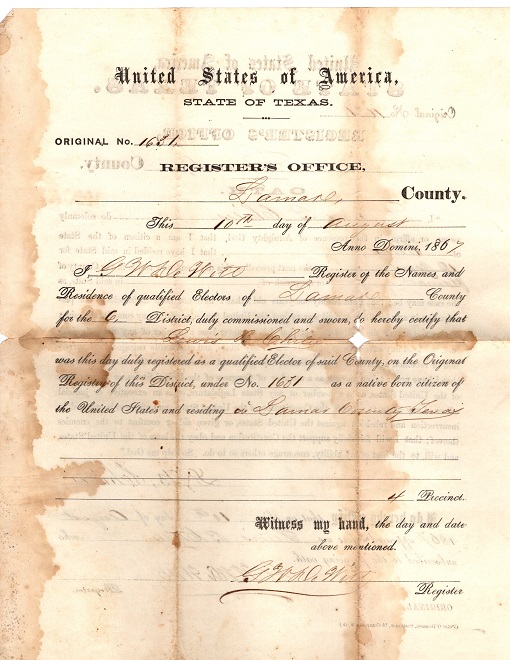 United States of America,
STATE OF TEXAS.
ORIGINAL No. 1631
REGISTER'S OFFICE,
Lamar County.
This 10th day of August
Anno Domini, 1867
I G W DeWitt Register of the Names, and
Residence of qualified Electors of Lamar County
for the 6 District, duly commissioned and sworn, do hereby certify that
Lewis
was this day duly registered as a qualified Elector of said County, on the Original
Register of this District, under No. 1631 as a native born citizen of
the United States and residing in Lamar County Texas
4 Precinct.
Witness my hand, the day and date
above mentioned.
G W DeWitt
Register